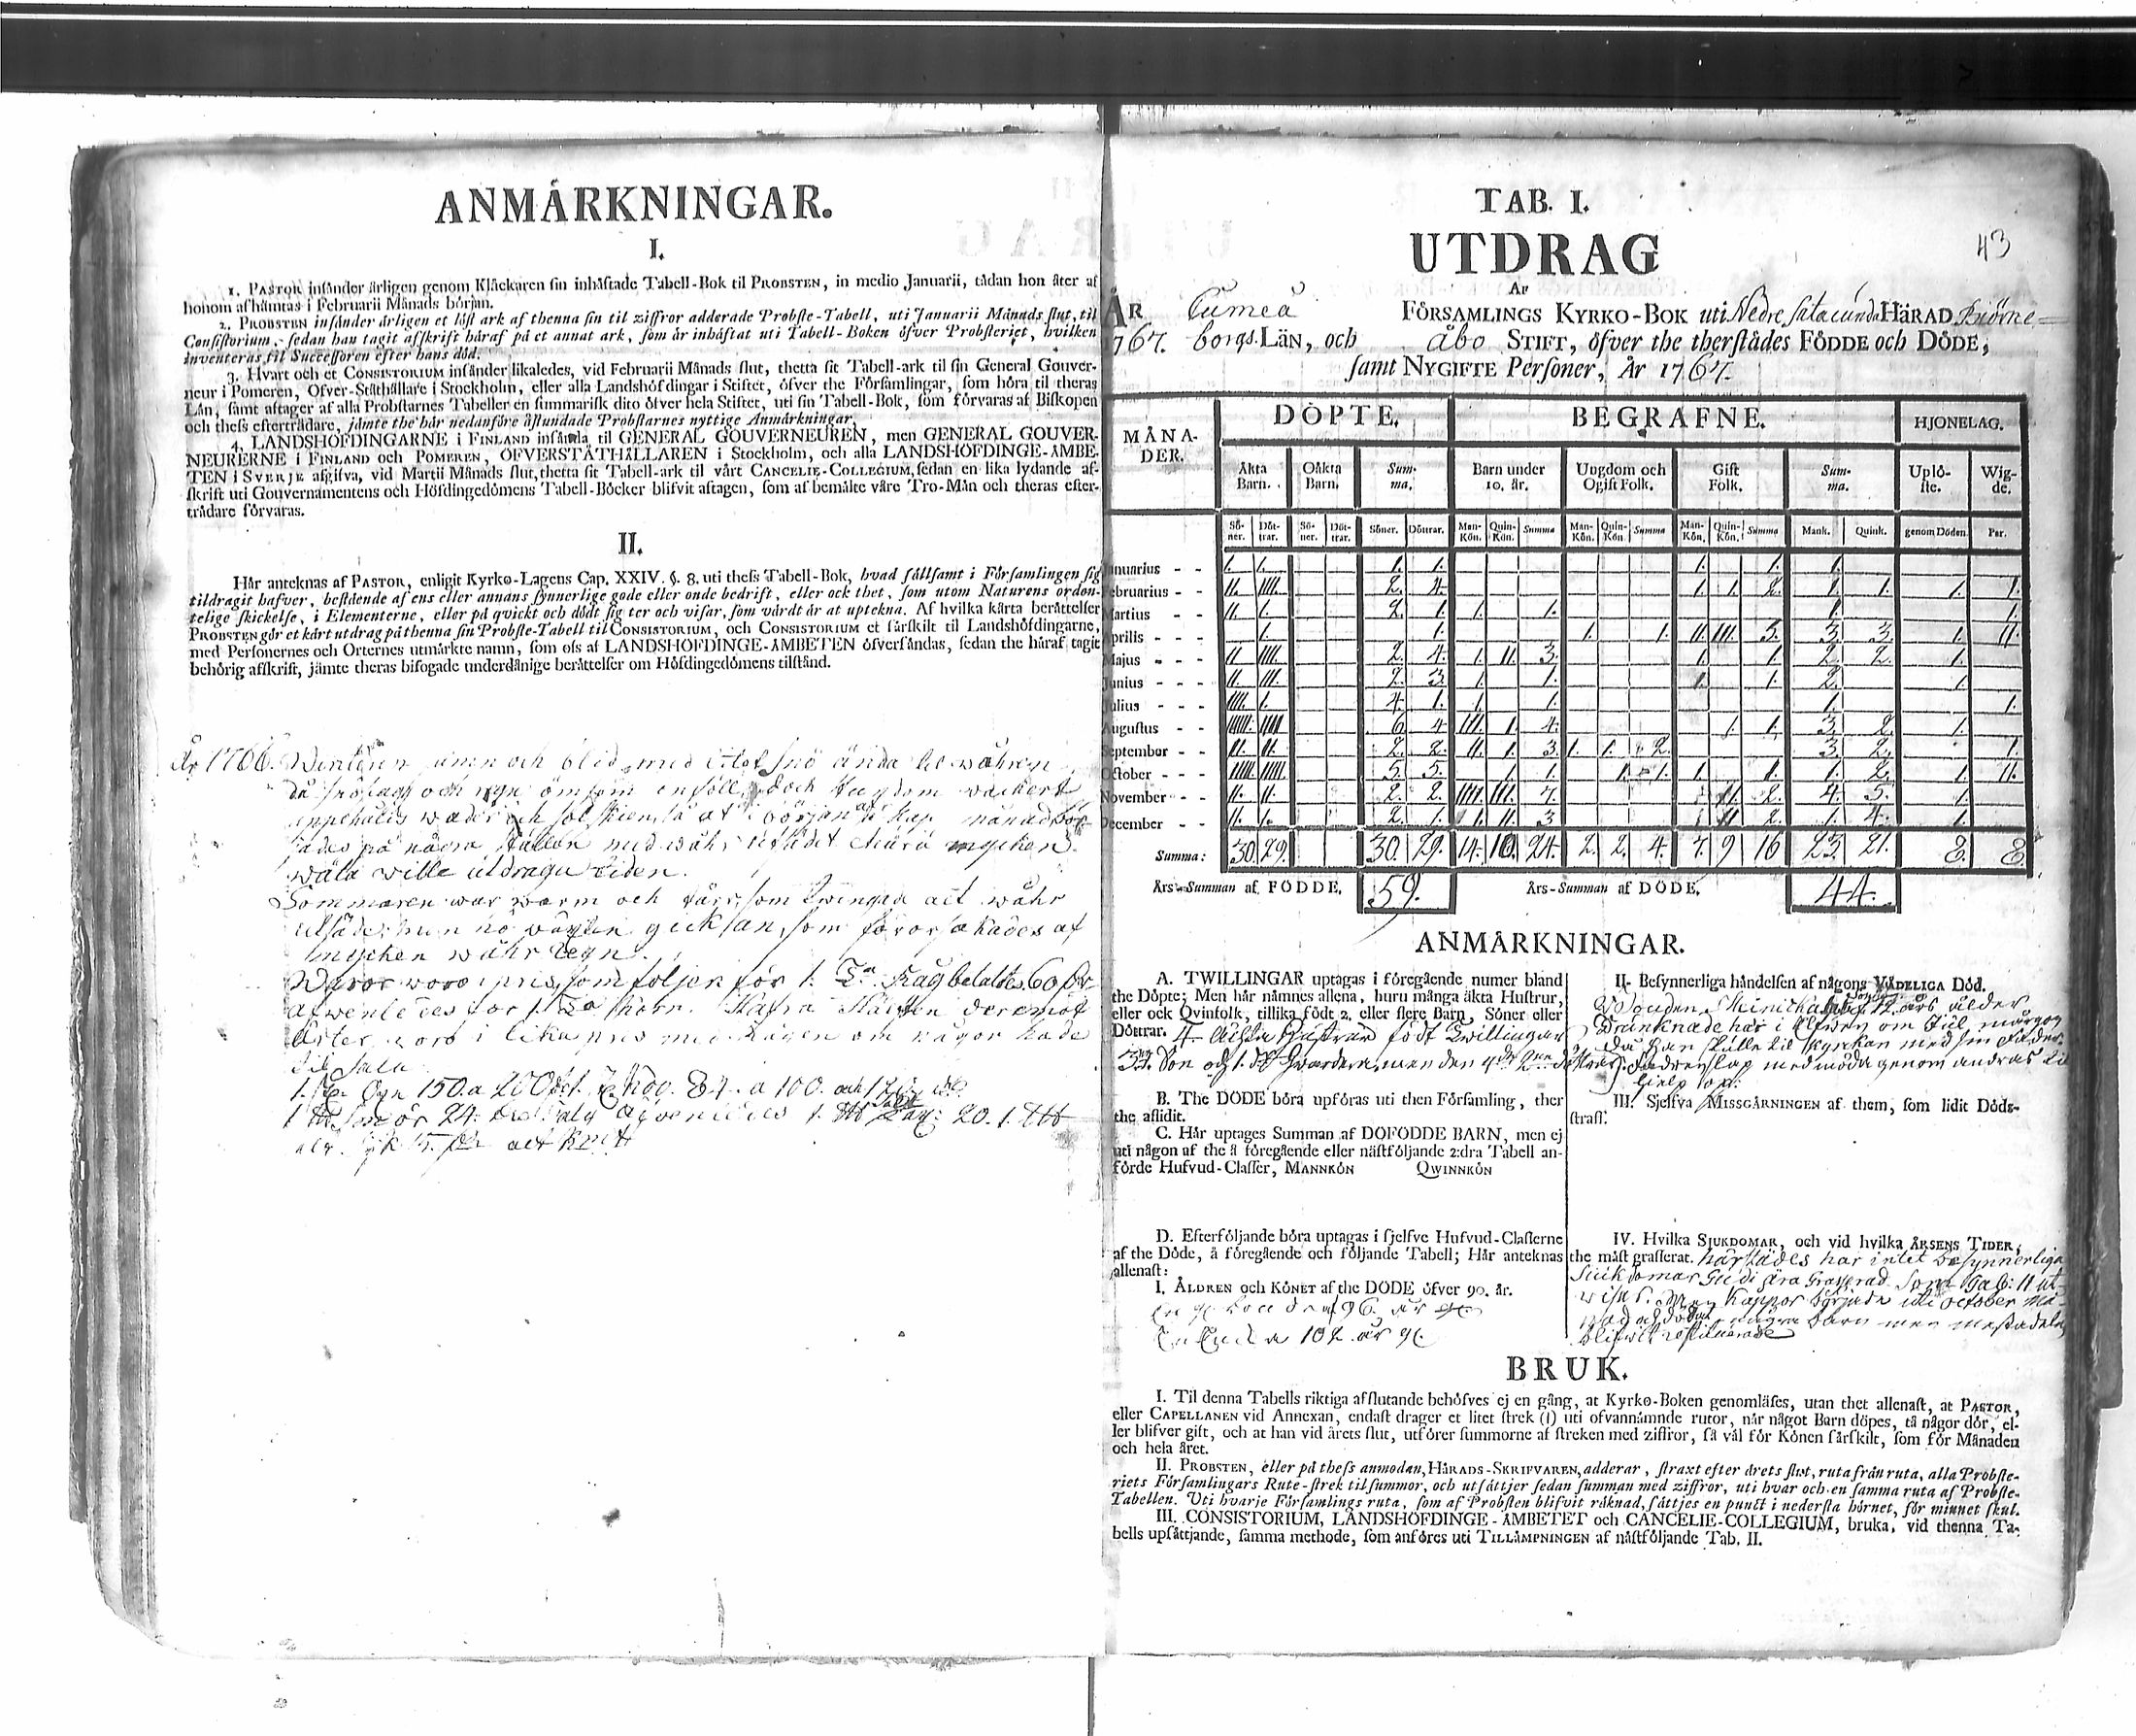 ANMÄRKNINGAR.
I.
1. PASTOR insänder årligen genom Kläckaren sin inhäftade Tabell-Bok til PROBSTEN, in medio Januarii, tådan hon åter af
honom afhämtas i Februarii Månads början.
2. PROBSTEN insänder årligen et löst ark af thenna sin til ziffror adderade Probste-Tabell, uti Januarii Månads slut, til
Consistorium, sedan han tagit afskrift häraf på et annat ark, som är inhäftat uti Tabell-Boken öfver Probsteriet, hvilken
inventeras til Successoren efter hans död.
3. Hvart och et CONSISTORIUM insänder likaledes, vid Februarii Månads slut, thetta sit Tabell-ark til sin General Gouver-
neur i Pomeren, Öfver-Ståthållare i Stockholm, eller alla Landshöfdingar i Stiftet, öfver the Församlingar, som höra til theras
Län, samt aftager af alla Probstarnes Tabeller en summarisk dito öfver hela Stiftet, uti sin Tabell-Bok, som förvaras af Biskopen
och thess efterträdare, jämte the här nedanföre åstundade Probstarnes nyttige Anmärkningar.
4. LANDSHÖFDINGARNE i FINLAND insämla til GENERAL GOUVERNEUREN, men GENERAL GOUVER-
NEURERNE i FINLAND och POMEREN, ÖFVERSTÅTHÅLLAREN i Stockholm, och alla LANDSHÖFDINGE-ÄMBE-
TEN i SVERJE afgifva, vid Martii Månads slut, thetta sit Tabell-ark til vårt CANCELIE-COLLEGIUM, sedan en lika lydande af-
skrift uti Gouvernamentens och Höfdingedömens Tabell-Böcker blifvit aftagen, som af bemälte våre Tro-Män och theras efter-
trädare förvaras.
II.
Här anteknas af PASTOR, enligit Kyrko-Lagens Cap. XXIV. §. 8. uti thess Tabell-Bok, hvad sällsamt i Församlingen sig
tildragit hafver, bestående af ens eller annans synnerlige gode eller onde bedrift, eller ock thet, som utom Naturens orden-
telige skickelse, i Elementerne, eller på qvickt och dödt sig ter och visar, som värdt är at uptekna. Af hvilka kårta berättelser
PROBSTEN gör et kårt utdrag på thenna sin Probste-Tabell til CONSISTORIUM, och CONSISTORIUM et särskilt til Landshöfdingarne,
med Personernes och Orternes utmärkte namn, som oss af LANDSHÖFDINGE-ÄMBETEN öfversändas, sedan the häraf tagit
behörig afskrift, jämte theras bifogade underdånige berättelser om Höfdingedömens tilstånd.
År 1766. Winteren och blid, med litet snö ända til wåhren
då snöfall och
wäder och solskien, så at i början af
på några ställen med wåhr
wäta wille utdraga tiden.
Sommaren war warm och som twingade alt wåhr
som förorsakades af
mycken wåhr regn.
Waror woro i pris, som följer för 1. Råg betaltes 60
1. korn. Hafra deremot
i lika pris med Rågen om någon hade
til sala.
TAB. I.
UTDRAG
43
Af
ÅR Cumeå FÖRSAMLINGS KYRKO-BOK uti Nedre Satacunda HÄRAD Biörne=
1767. borgs LÄN, och Åbo STIFT, öfver the therstädes FÖDDE och DÖDE,
samt NYGIFTE Personer, År 1767.
MÅNA-DER. DÖPTE. BEGRAFNE. HJONELAG.
Äkta Barn. Oäkta Barn. Sum-ma. Barn under 10. år. Ungdom och Ogift Folk. Gift Folk. Sum-ma. Uplö-ste. Wig-de.
Sö-ner. Döt-trar. Sö-ner. Döt-trar. Söner. Döttrar. Man-Kön. Quin-Kön. Summa Man-Kön. Quin-Kön Summa Man-Kön. Quin-Kön. Summa Mank. Quink. genom Döden. Par.
Januarius - - 1. 1. 1. 1. 1. 1. 1.
Februarius - - II. IIII. 2. 4. 1. 1. 2. 1. 1. 1. 1.
Martius - - II. 1. 2. 1. 1. 1. 1. 1.
Aprilis - - - 1. 1. 1. 1. II. III. 5. 3. 3. 1. II.
Majus - - - II. IIII. 2. 4. 1. II. 3. 1. 1. 2. 2. 1.
Junius - - - II. III. 2. 3. 1. 1. 1. 1. 2. 1.
Julius - - - IIII. 1. 4. 1. 1. 1. 1. 1.
Augustus - - IIIIII. IIII 6 4 III. 1. 4. 1. 1. 3. 2. 1.
September - - II. II. 2. 2. II. 1. 3. 1. 1. 2. 3. 2. 1.
October - - - IIIII. IIIII. 5. 5. 1. 1. 1. 1. 1. 1. 1. 2. 1. II.
November - - II. II. 2. 2. IIII. III. 7. II. 2. 4. 5. 1.
December - - II. 1. 2. 1. 1. II. 3 II 2. 1. 4. 1.
Summa: 30. 29. 30. 29. 14. 10. 24. 2. 2. 4. 7. 9 16 23. 21. 8. 8.
Års-Summan af FÖDDE. 59. Års-Summan af DÖDE. 44.
ANMÄRKNINGAR.
A. TWILLINGAR uptagas i föregående numer bland
the Döpte; Men här nämnes allena, huru många äkta Hustrur,
eller ock Qvinfolk, tillika födt 2. eller flere Barn, Söner eller
Döttrar. 4. Äckta Hustrur födt Twillingar
B. The DÖDE böra upföras uti then Församling, ther
the aflidit.
C. Här uptages Summan af DÖFÖDDE BARN, men ej
uti någon af the å föregående eller nästföljande 2:dra Tabell an-
förde Hufvud-Classer, MANNKÖN QWINNKÖN
D. Efterföljande böra uptagas i sjelfve Hufvud-Classerne
af the Döde, å föregående och följande Tabell; Här anteknas
allenast:
I. ÅLDREN och KÖNET af the DÖDE öfver 90. år.
96. år
Enckia 102 år
II. Besynnerliga händelsen af någons VÅDELIGA Död.
Bonden Heinickalas Son 12 års ålder
Drunknade här i Elfwen om Jul morgon
då han skulle til Kyrkan med sin Fader.
Fadren slap med möda genom andras til
hielp op.
III. Sjelfva MISSGÄRNINGEN af them, som lidit Döds-
straff.
IV. Hvilka SJUKDOMAR, och vid hvilka ÅRSENS TIDER,
the mäst grasserat. härstädes har intet besynnerliga
Siukdomar Gudi ära Grasserad Som Tab: II ut-
wisar. Men Kappor började uti October Må-
nad några barn men mestadels
blifwit restituerade
BRUK.
I. Til denna Tabells riktiga afslutande behöfves ej en gång, at Kyrko-Boken genomläses, utan thet allenast, at PASTOR,
eller CAPELLANEN vid Annexan, endast drager et litet strek (I) uti ofvannämnde rutor, när något Barn döpes, tå någor dör, el-
ler blifver gift, och at han vid årets slut, utförer summorne af streken med ziffror, så väl för Könen särskilt, som för Månaden
och hela året.
II. PROBSTEN, eller på thess anmodan, HÄRADS-SKRIFVAREN, adderar, straxt efter årets slut, ruta från ruta, alla Probste-
riets Församlingars Rute-strek til summor, och utsättjer sedan summan med ziffror, uti hvar och en samma ruta af Probste-
Tabellen. Uti hvarje Församlings ruta, som af Probsten blifvit räknad, sättjes en punct i nedersta hörnet, för minnet skul.
III. CONSISTORIUM, LANDSHÖFDINGE-ÄMBETET och CANCELIE-COLLEGIUM, bruka, vid thenna Ta-
bells upsättjande, samma methode, som anföres uti TILLÄMPNINGEN af nästföljande Tab. II.